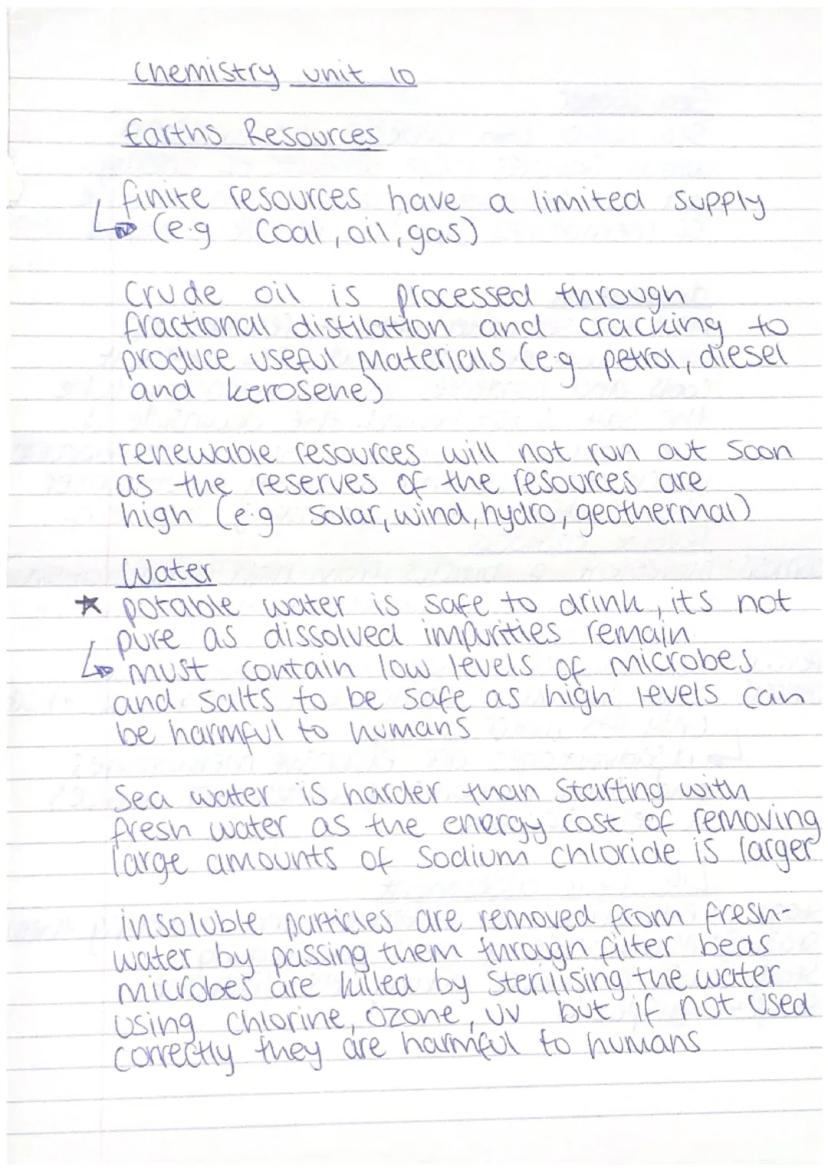 Chemistry unit 10
Earths Resources
finite resources have a limited supply
↳ (e.g Coal, oil, gas)
Crude oil is processed through
fractional distilation and cracking to
produce useful materials (e.g petrol, diesel
and kerosene)
renewable resources will not run out soon
as the reserves of the resources are
high (e.g solar, wind, hydro, geothermal)
Water
★ potable water is safe to drink, its not
pure as dissolved impurities remain
↳ must contain low levels of microbes
and salts to be safe as high levels can
be harmful to humans
Sea water is harder than starting with
fresh water as the energy cost of removing
large amounts of sodium chloride is larger
insoluble particles are removed from fresh-
water by passing them through filter beds
microbes are killed by sterilising the water
using chlorine, ozone, uv but if not used
correctly they are harmful to humans